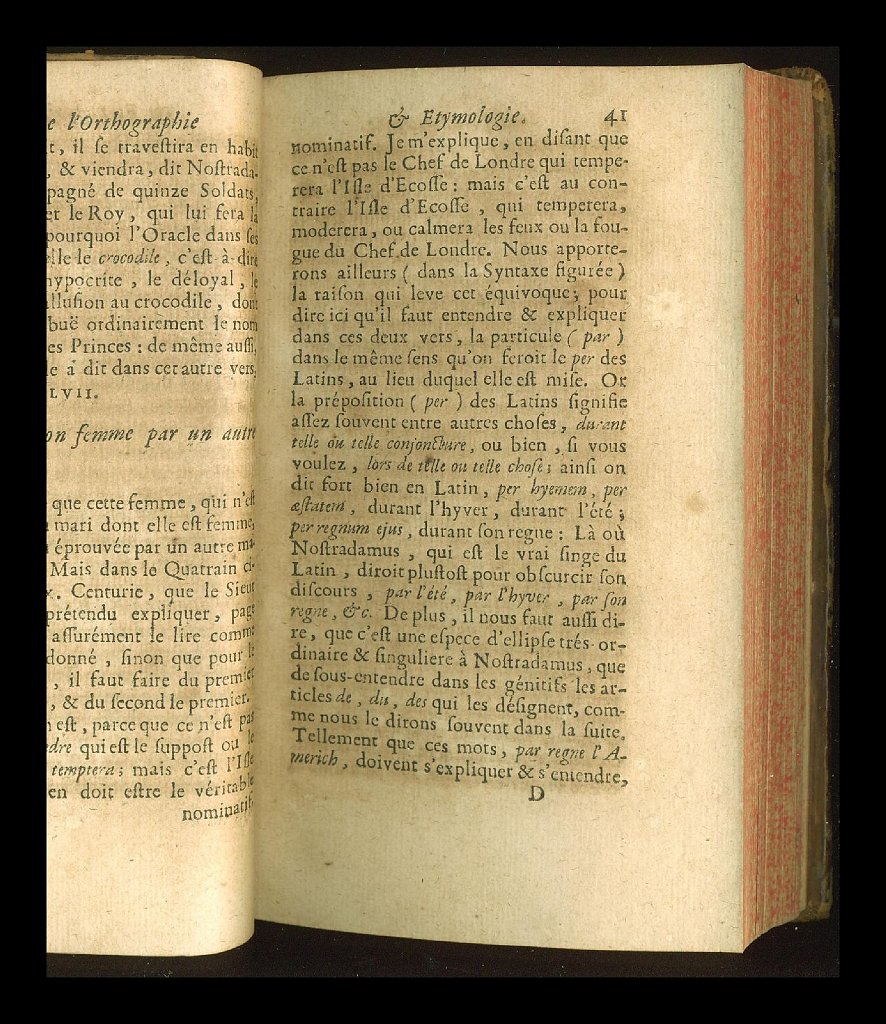 e l'Orthographie
t, il se travestira en habit
, & viendra, dit Nostrada-
pagné de quinze Soldats,
er le Roy, qui lui fera la
pourquoi l'Oracle dans ses
lle le crocodile, c'est-à-dire
hypocrite, le déloyal, le
llusion au crocodile, dont
buë ordinairement le nom
es Princes : de même aussi,
le a dit dans cet autre vers,
LVII.
on femme par un autre
que cette femme, qui n'est
mari dont elle est femme,
éprouvée par un autre ma-
Mais dans le Quatrain ci-
x. Centurie, que le Sieur
prétendu expliquer, page
assurément le lire comme
donné, sinon que pour le
, il faut faire du premier
, & du second le premier.
est, parce que ce n'est pas
dre qui est le suppost ou le
temptera; mais c'est l'Isle
en doit estre le véritable
nominatif.
& Etymologie. 41
nominatif. Je m'explique, en disant que
ce n'est pas le Chef de Londre qui tempe-
rera l'Isle d'Ecosse : mais c'est au con-
traire l'Isle d'Ecosse, qui temperera,
moderera, ou calmera les feux ou la fou-
gue du Chef de Londre. Nous apporte-
rons ailleurs ( dans la Syntaxe figurée )
la raison qui leve cet équivoque; pour
dire ici qu'il faut entendre & expliquer
dans ces deux vers, la particule ( par )
dans le même sens qu'on feroit le per des
Latins, au lieu duquel elle est mise. Or
la préposition ( per ) des Latins signifie
assez souvent entre autres choses, durant
telle ou telle conjoncture, ou bien, si vous
voulez, lors de telle ou telle chose; ainsi on
dit fort bien en Latin, per hyemem, per
æstatem, durant l'hyver, durant l'été;
per regnum ejus, durant son regne : Là où
Nostradamus, qui est le vrai singe du
Latin, diroit plustost pour obscurcir son
discours, par l'été, par l'hyver, par son
regne, &c. De plus, il nous faut aussi di-
re, que c'est une espece d'ellipse trés-or-
dinaire & singuliere à Nostradamus, que
de sous-entendre dans les génitifs les ar-
ticles de, du, des qui les désignent, com-
me nous le dirons souvent dans la suite.
Tellement que ces mots, par regne l'A-
merich, doivent s'expliquer & s'entendre,
D